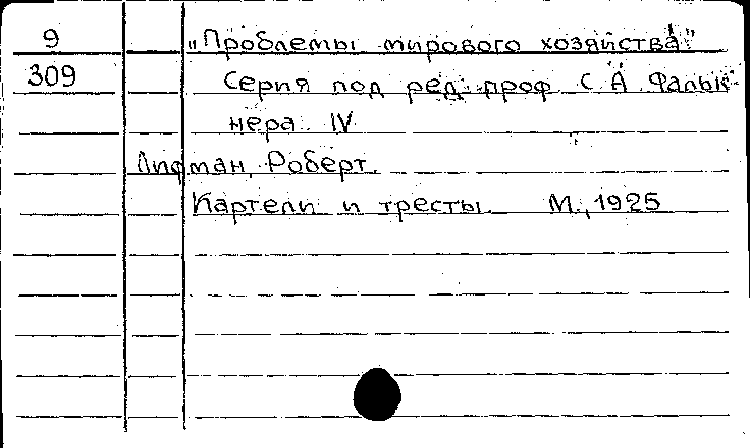 9 „Проблемы мирового хозяйства"
309 Серия под ред. проф. С. А. Фальк-
нера. IV
Лифман, Роберт.
Картели и тресты. М., 1925